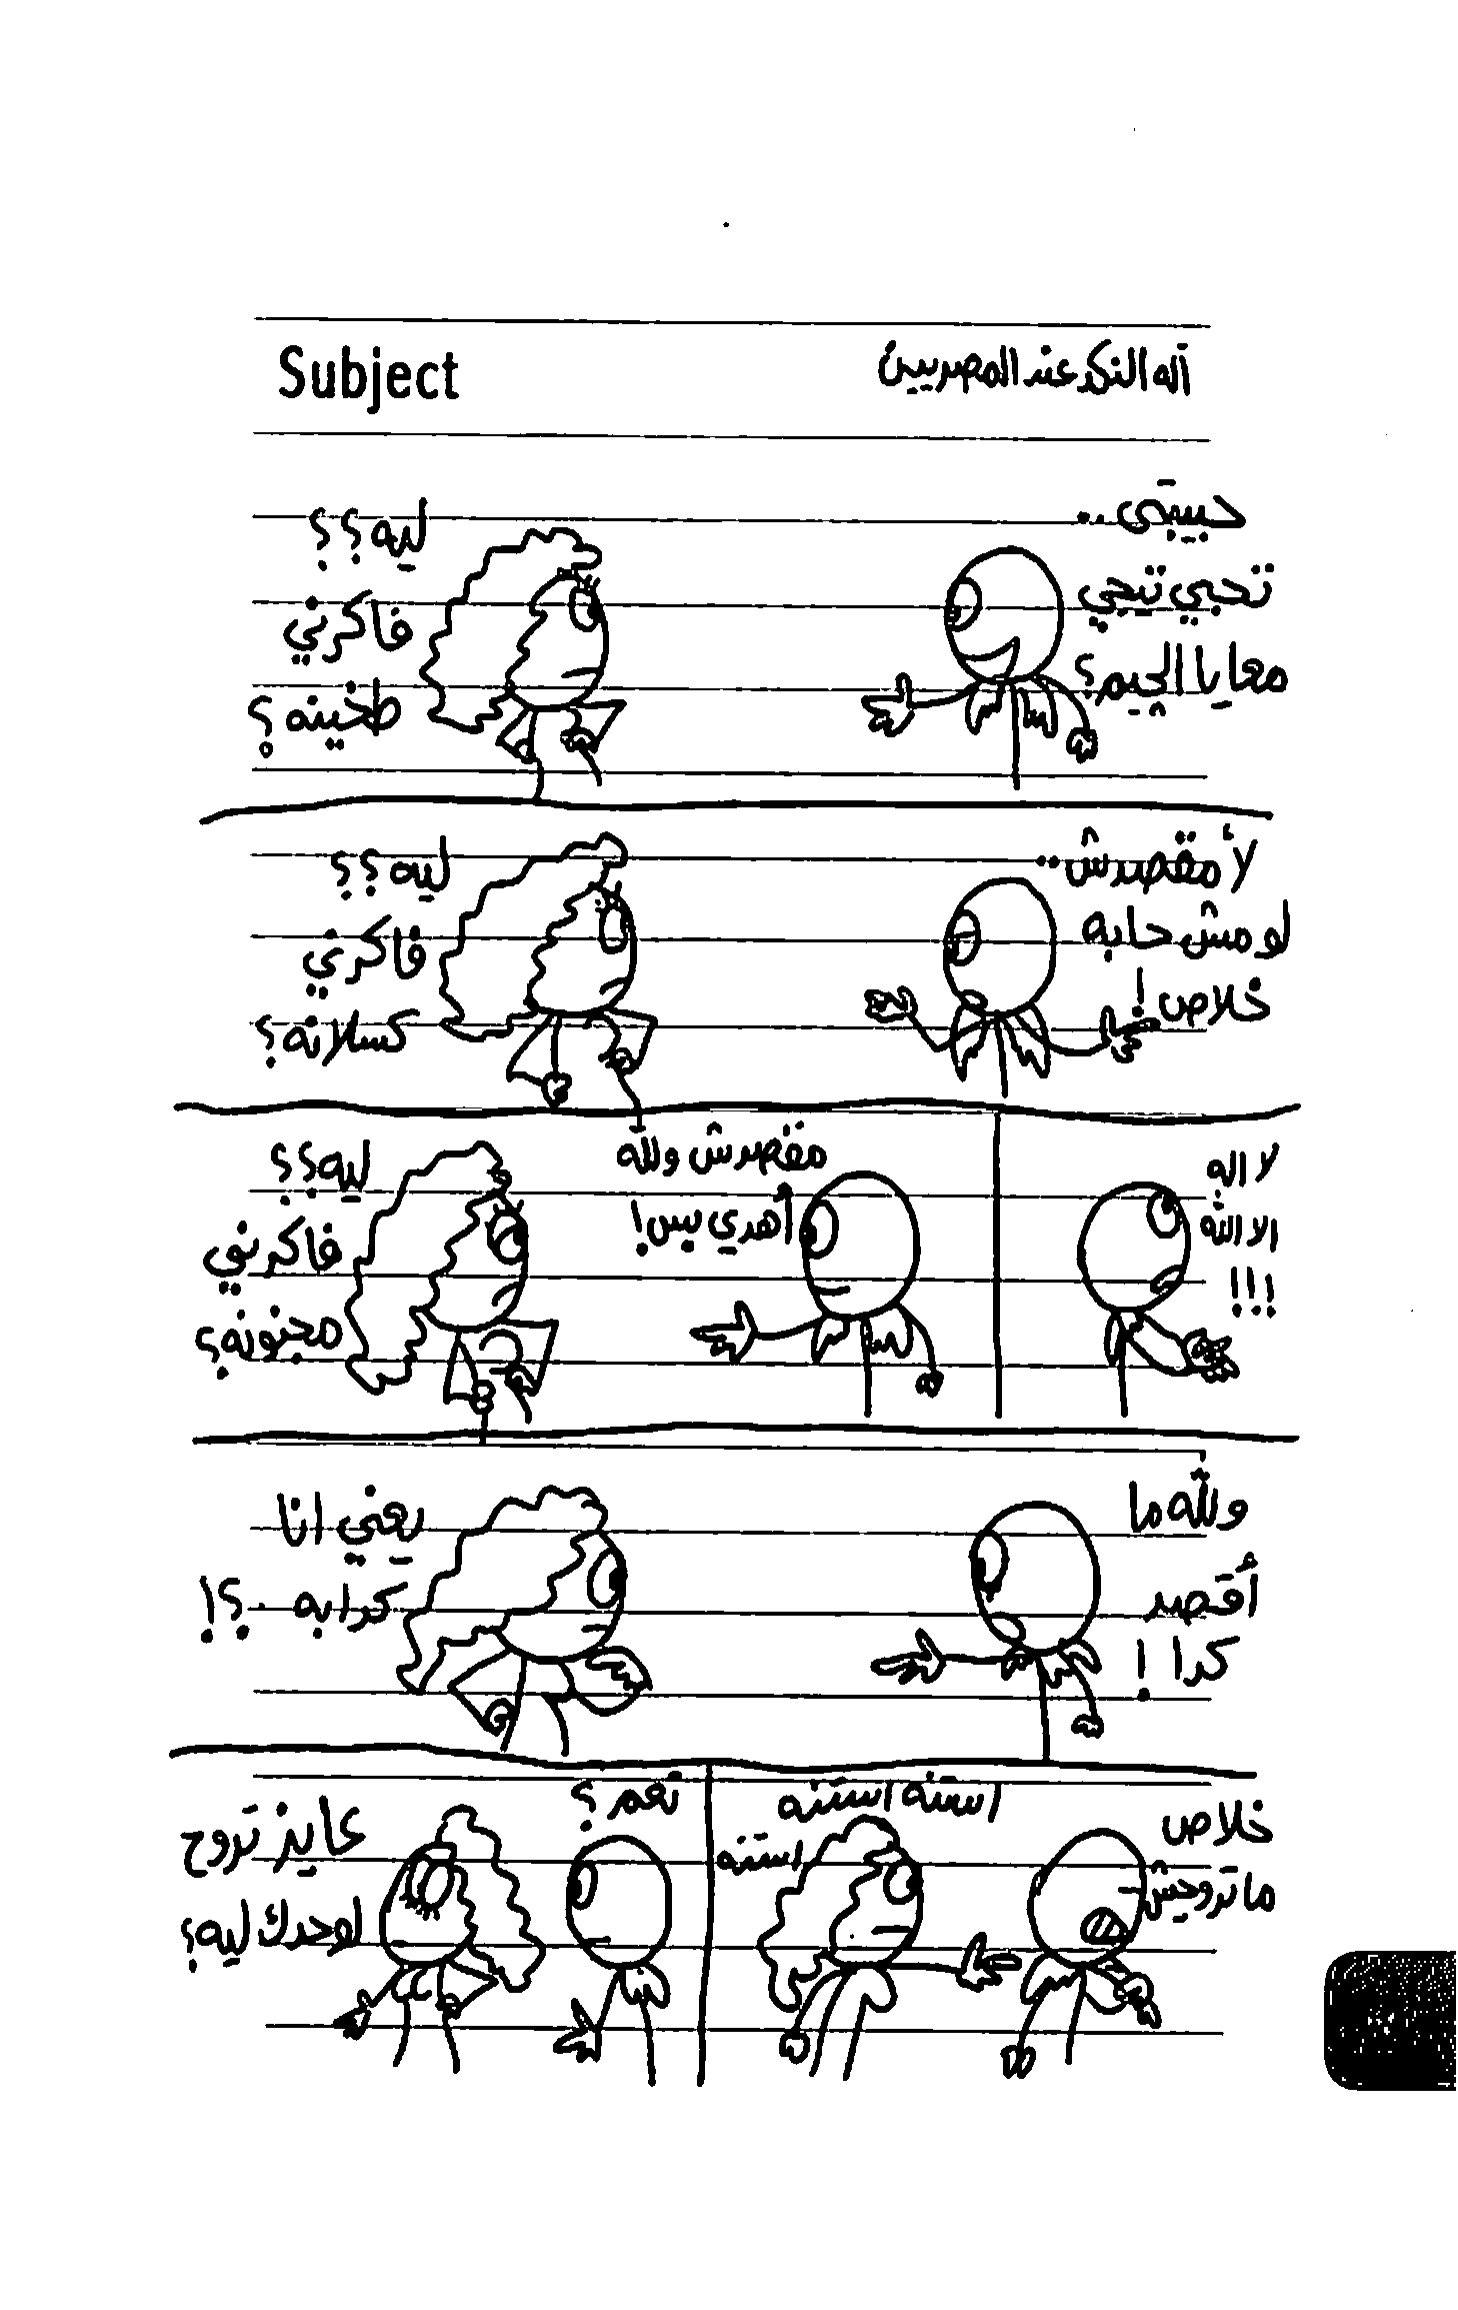 Subject
آله النكد عند المصريين
حبيبتى..
تحبي تيجي
معايا الجيم؟
ليه؟؟
فاكرني
طخينه؟
لأ مقصدش..
لو مش حابه
خلاص!
ليه؟؟
فاكرني
كسلانه؟
لا اله
الا الله
!!!
مقصدش ولله
أهدي بس!
ليه؟؟
فاكرني
مجنونه؟
ولله ما
أقصد
كدا!
يعني انا
كدابه ؟!
خلاص
ماتروحيش
استنه استنه
استنه
نعم؟
عايز تروح
لوحدك ليه؟